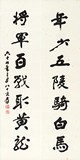 年少五陵騎白馬
將軍百戰取黃龍